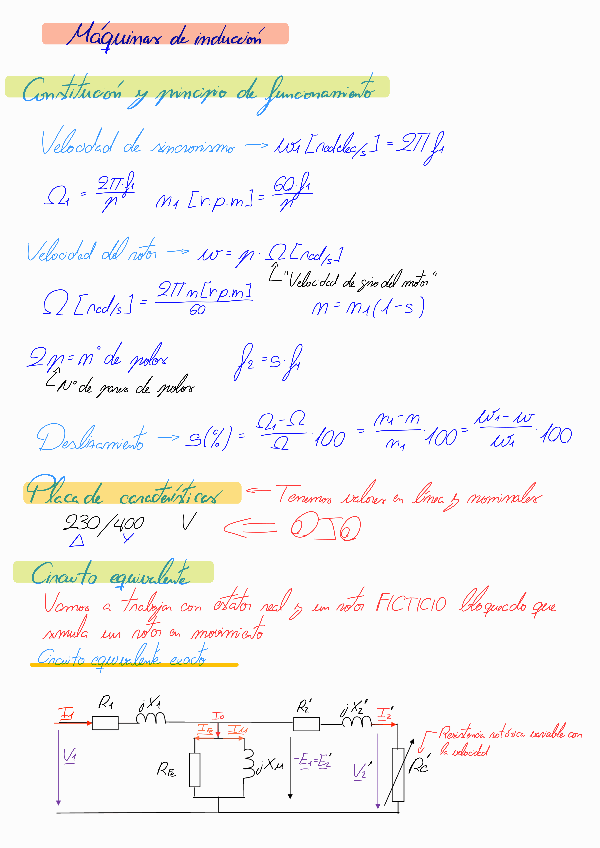 Máquinas de inducción
Constitución y principio de funcionamiento
Velocidad de sincronismo → ω1 [rad elec/s] = 2π f1
Ω1 = 2π·f1/p   n1 [r.p.m] = 60·f1/p
Velocidad del rotor → ω = p · Ω [rad/s]
"Velocidad de giro del motor"
Ω [rad/s] = 2π n [r.p.m]/60   n = n1 (1-s)
2p = nº de polos   f2 = s·f1
Nº de pares de polos
Deslizamiento → s(%) = (Ω1-Ω)/Ω · 100 = (n1-n)/n1 · 100 = (ω1-ω)/ω1 · 100
Placa de características ← Tenemos valores en línea y nominales
230/400 V ⇐ OJO
Δ Y
Circuito equivalente
Vamos a trabajar con estátor real y un rotor FICTICIO bloqueado que
simula un rotor en movimiento
Circuito equivalente exacto
I1 R1 jX1 I0 R2' jX2' I2'
IFe Iμ
Resistencia rotórica variable con
la velocidad
V1 RFe jXμ -E1=E2' V2' Rc'